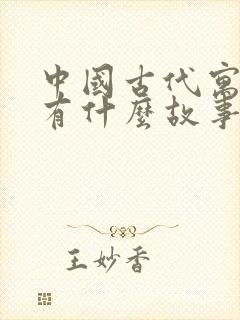 中國古代寓
有什麼故事
王妙香